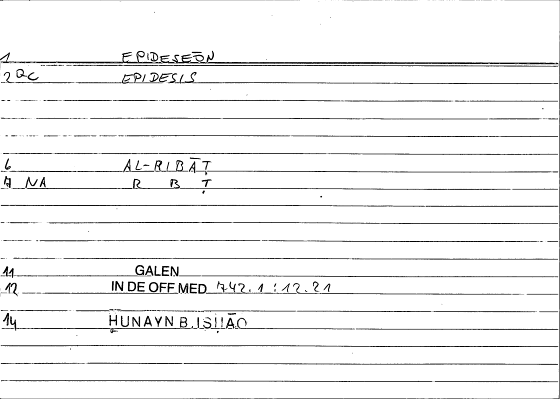 1 EPIDESEŌN
2 QC EPIDESIS
6 AL-RIBĀṬ
7 NA R B Ṭ
11 GALEN
12 IN DE OFF.MED. 742.1:12.21
14 ḤUNAYN B.ISḤĀQ